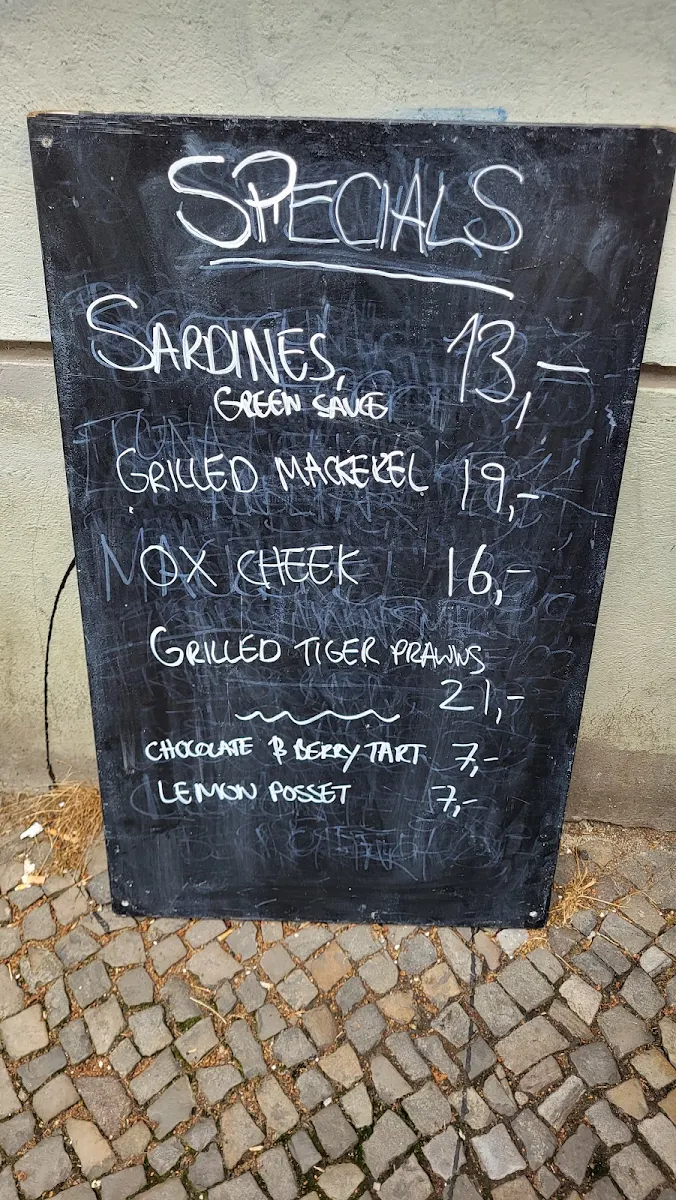 SPECIALS
SARDINES, 13,-
GREEN SAUCE
GRILLED MACKEREL 19,-
OX CHEEK 16,-
GRILLED TIGER PRAWNS
21,-
CHOCOLATE & BERRY TART 7,-
LEMON POSSET 7,-